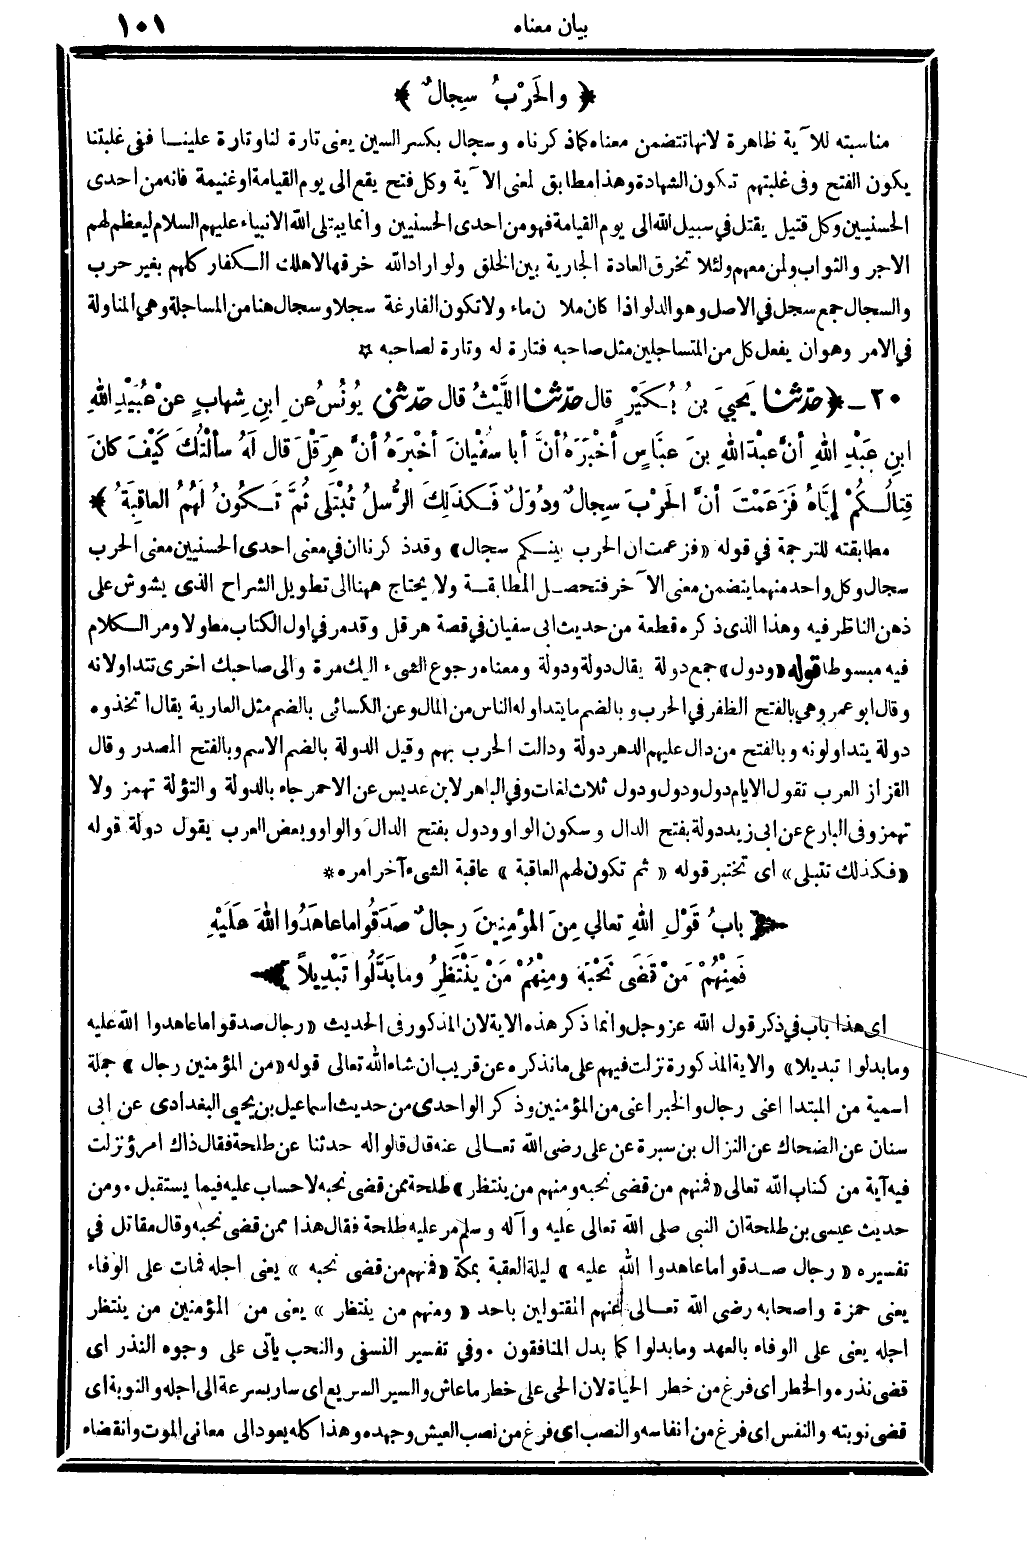 بيان معناه ١٠١
﴿ والحَرْبُ سِجالٌ ﴾
مناسبته للآية ظاهرة لانها تتضمن معناه كما ذكرناه وسجال بكسر السين يعنى تارة لنا وتارة علينا ففى غلبتنا
يكون الفتح وفى غلبتهم تكون الشهادة وهذا مطابق لمعنى الآية وكل فتح يقع الى يوم القيامة او غنيمة فانه من احدى
الحسنيين وكل قتيل يقتل في سبيل الله الى يوم القيامة فهو من احدى الحسنيين وانما يبتلى الله الانبياء عليهم السلام ليعظم لهم
الاجر والثواب ولمن معهم ولئلا تخرق العادة الجارية بين الخلق ولو اراد الله خرقها لاهلك الكفار كلهم بغير حرب
والسجال جمع سجل في الاصل وهو الدلو اذا كان ملآن ماء ولا تكون الفارغة سجلا وسجال هنا من المساجلة وهي المناولة
في الامر وهو ان يفعل كل من المتساجلين مثل صاحبه فتارة له وتارة لصاحبه ☆
٢٠ ـ ﴿ حدّثنا يَحيىَ بنُ بُكَيْرٍ قال حدّثنا اللَّيْثُ قال حدّثنى يُونُسُ عنِ ابنِ شِهابٍ عنْ عُبَيْدِ اللهِ
ابنِ عَبْدِ اللهِ أنَّ عبْدَ اللهِ بنَ عبَّاسٍ أخْبَرَهُ أنَّ أبا سُفْيانَ أخْبرَهُ أنَّ هِرَقْلَ قال لَهُ سألْتُكَ كَيْفَ كانَ
قِتالُكُمْ إيَّاهُ فَزَعَمْتَ أنَّ الحَرْبَ سِجالٌ ودُوَلٌ فَكذَلِكَ الرُّسلُ تُبْتَلَى ثُمَّ تَكونُ لَهُمُ العاقِبَةُ ﴾
مطابقته للترجمة في قوله «فزعمت ان الحرب بينكم سجال» وقد ذكرنا ان في معنى احدى الحسنيين معنى الحرب
سجال وكل واحد منهما يتضمن معنى الآخر فتحصل المطابقة ولا يحتاج ههنا الى تطويل الشراح الذى يشوش على
ذهن الناظر فيه وهذا الذى ذكره قطعة من حديث ابى سفيان في قصة هرقل وقد مر في اول الكتاب مطولا ومر الكلام
فيه مبسوطا قوله «ودول» جمع دولة يقال دولة ودولة ومعناه رجوع الشىء اليك مرة والى صاحبك اخرى تتداولانه
وقال ابو عمر وهي بالفتح الظفر في الحرب وبالضم ما يتداوله الناس من المال وعن الكسائى بالضم مثل العارية يقال اتخذوه
دولة يتداولونه وبالفتح من دال عليهم الدهر دولة ودالت الحرب بهم وقيل الدولة بالضم الاسم وبالفتح المصدر وقال
القزاز العرب تقول الايام دول ودول ودول ثلاث لغات وفي الباهر لابن عديس عن الاحمر جاء بالدولة والتؤلة تهمز ولا
تهمز وفى البارع عن ابى زيد دولة بفتح الدال وسكون الواو ودول بفتح الدال والواو وبعض العرب يقول دولة قوله
«فكذلك تبتلى» اى تختبر قوله « ثم تكون لهم العاقبة » عاقبة الشىء آخر امره *
﴿ بابُ قَوْلِ اللهِ تعالي مِنَ المُؤْمِنِينَ رِجالٌ صدَقُوا ما عاهَدُوا اللهَ عَلَيْهِ
فَمِنْهُمْ مَنْ قَضَى نَحْبَهُ ومِنْهُمْ مَنْ يَنْتَظِرُ وما بَدَّلُوا تَبْدِيلاً ﴾
اى هذا باب في ذكر قول الله عز وجل وانما ذكر هذه الاية لان المذكور فى الحديث «رجال صدقوا ما عاهدوا الله عليه
وما بدلوا تبديلا» والاية المذكورة نزلت فيهم على ما نذكره عن قريب ان شاء الله تعالى قوله «من المؤمنين رجال » جملة
اسمية من المبتدا اعنى رجال والخبر اعنى من المؤمنين وذكر الواحدى من حديث اسماعيل بن يحيى البغدادى عن ابى
سنان عن الضحاك عن النزال بن سبرة عن على رضى الله تعالى عنه قال قالوا له حدثنا عن طلحة فقال ذاك امرؤ نزلت
فيه آية من كتاب الله تعالى «فمنهم من قضى نحبه ومنهم من ينتظر» طلحة ممن قضى نحبه لا حساب عليه فيما يستقبل . ومن
حديث عيسى بن طلحة ان النبي صلى الله تعالى عليه وآله وسلم مر عليه طلحة فقال هذا ممن قضى نحبه وقال مقاتل في
تفسيره « رجال صدقوا ما عاهدوا الله عليه » ليلة العقبة بمكة «فمنهم من قضى نحبه » يعنى اجله فمات على الوفاء
يعنى حمزة واصحابه رضى الله تعالى عنهم المقتولين باحد « ومنهم من ينتظر » يعنى من المؤمنين من ينتظر
اجله يعنى على الوفاء بالعهد وما بدلوا كما بدل المنافقون . وفي تفسير النسفى والنحب يأتى على وجوه النذر اى
قضى نذره والخطر اى فرغ من خطر الحياة لان الحى على خطر ما عاش والسير السريع اى سار بسرعة الى اجله والنوبة اى
قضى نوبته والنفس اى فرغ من انفاسه والنصب اى فرغ من نصب العيش وجهده وهذا كله يعود الى معانى الموت وانقضاء